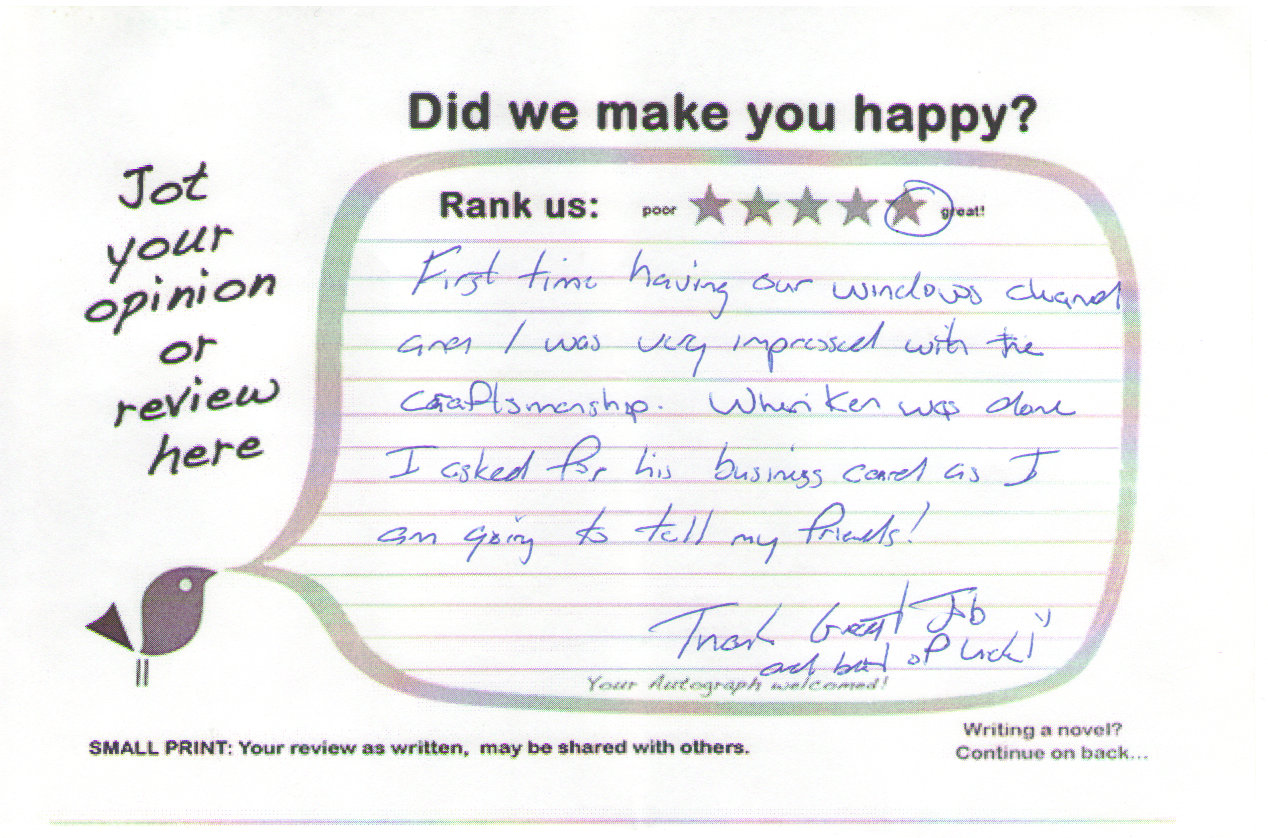 Did we make you happy?
Jot
your
opinion
or
review
here
Rank us: poor great!
First time having our windows cleaned
and I was very impressed with the
craftsmanship. When Ken was done
I asked for his business card as I
am going to tell my friends!
Great Job
and best of luck!
Your Autograph welcomed!
SMALL PRINT: Your review as written, may be shared with others.
Writing a novel?
Continue on back...